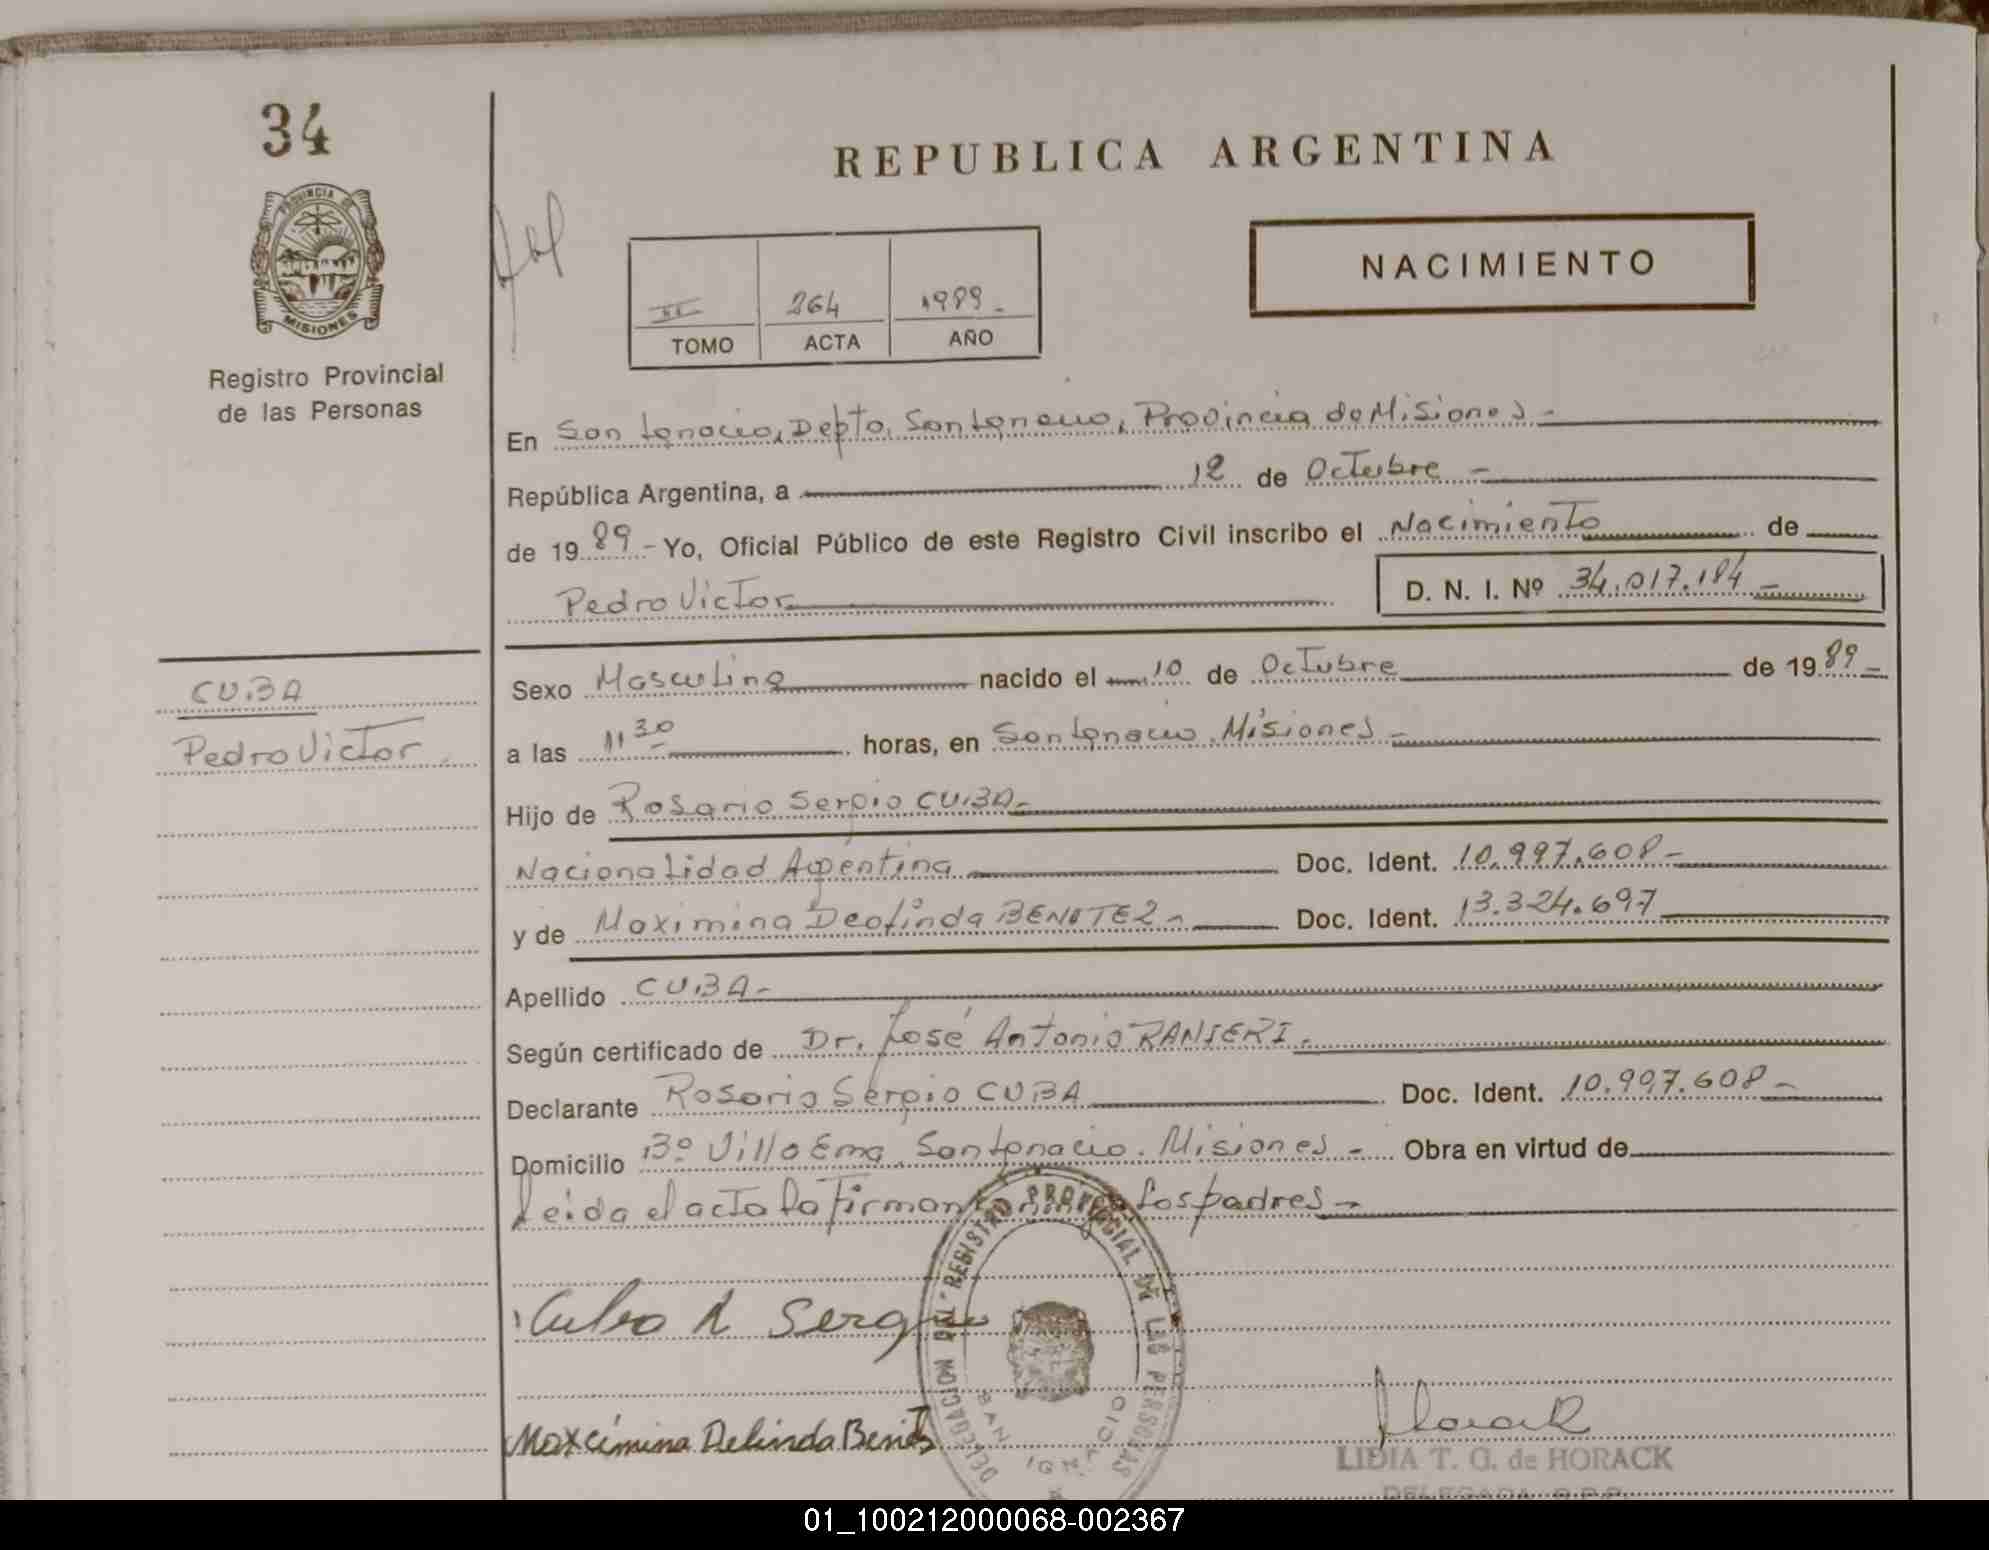 34
PROVINCIA DE
MISIONES
Registro Provincial
de las Personas
REPUBLICA ARGENTINA
NACIMIENTO
III 264 1989
TOMO ACTA AÑO
En San Ignacio, Depto, San Ignacio, Provincia de Misiones -
República Argentina, a 12 de Octubre -
de 1989 - Yo, Oficial Público de este Registro Civil inscribo el Nacimiento de
Pedro Victor D. N. I. Nº 34.017.184 -
CUBA
Pedro Victor
Sexo Masculino nacido el 10 de Octubre de 1989 -
a las 11 30 horas, en San Ignacio, Misiones -
Hijo de Rosario Sergio CUBA -
Nacionalidad Argentina Doc. Ident. 10.997.608 -
y de Maximina Deolinda BENITEZ - Doc. Ident. 13.324.697
Apellido CUBA -
Según certificado de Dr. José Antonio RANIERI -
Declarante Rosario Sergio CUBA Doc. Ident. 10.997.608 -
Domicilio Bº Villa Ema, San Ignacio. Misiones - Obra en virtud de
Leida el acta la firman los padres -
Cuba R Sergio
Maxcimina Delinda Benitez
DELEGACION DEL REGISTRO PROVINCIAL DE LAS PERSONAS
SAN IGNACIO
Horack
LIDIA T. G. de HORACK
DELEGADA R.P.P.
01_100212000068-002367